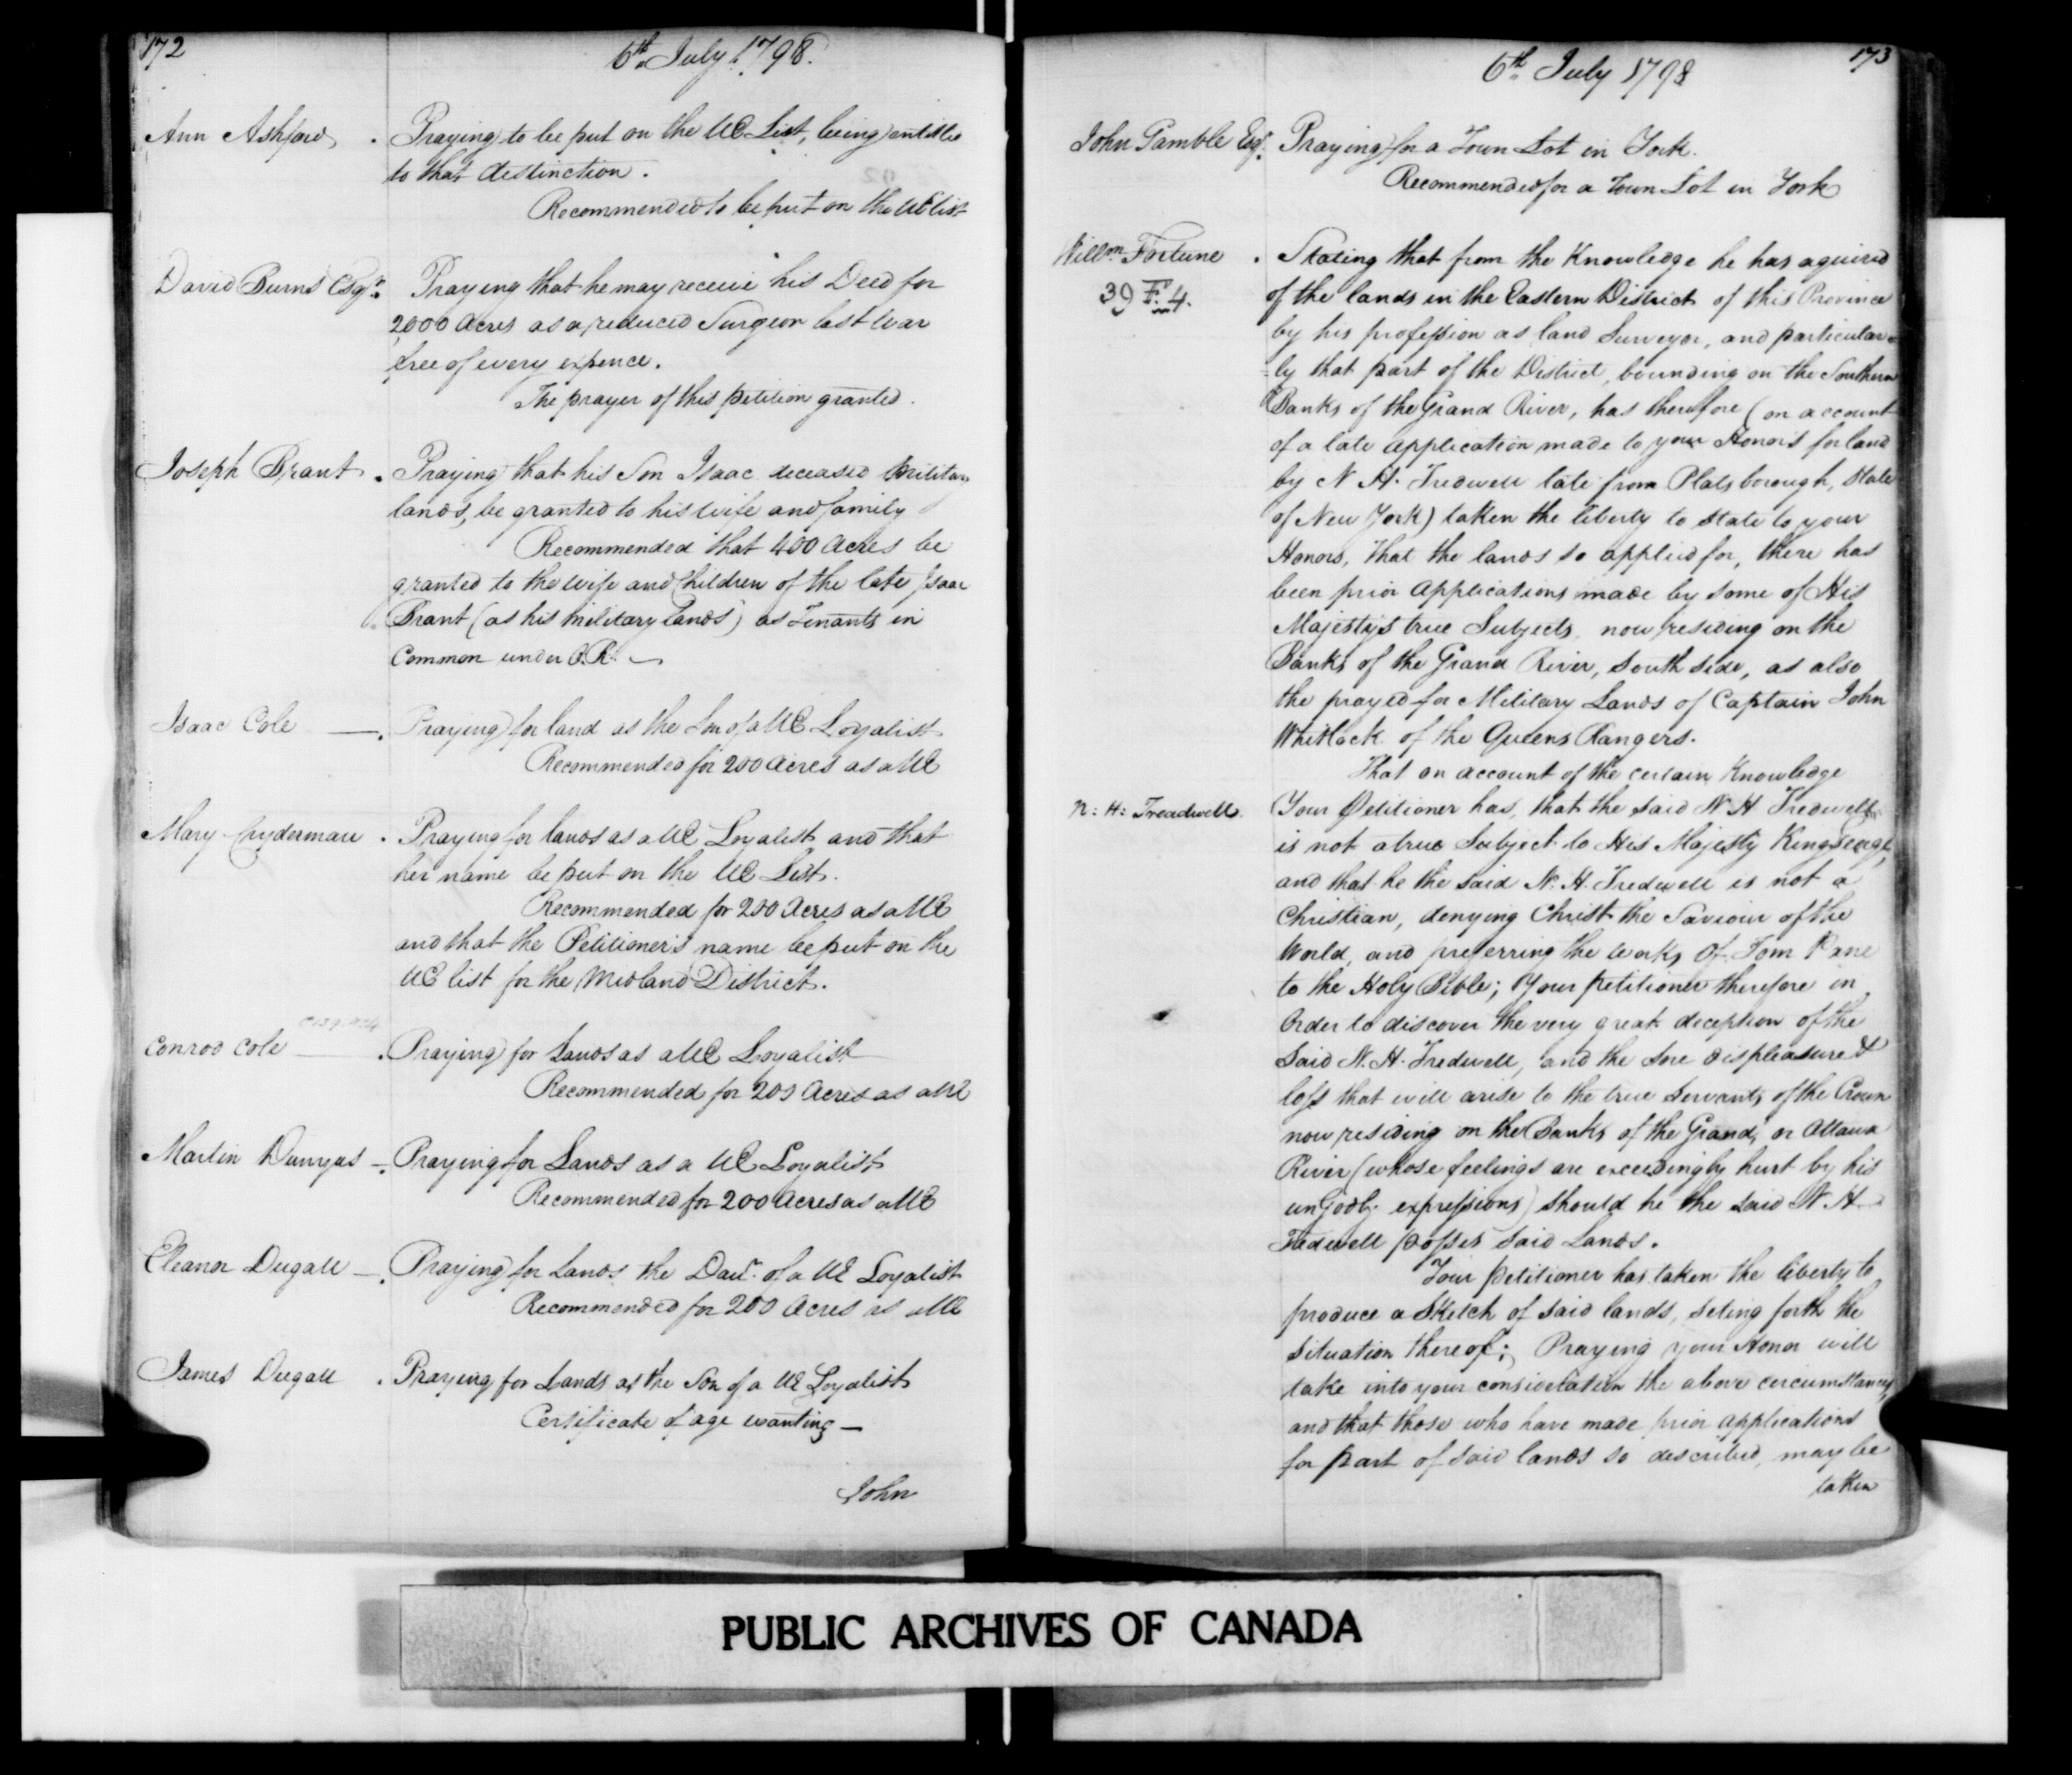 172
6th July 1798.
Ann Ashford . Praying to be put on the UE List, being entitled
to that distinction.
Recommended to be put on the UE list
David Burns Esqr. Praying that he may receive his Deed for
2,000 Acres as a reduced Surgeon last War
free of every expence.
The prayer of this petition granted.
Joseph Brant . Praying that his Son Isaac deceased Military
lands, be granted to his wife and family
Recommended that 400 Acres be
granted to the wife and Children of the late Isaac
Brant (as his Military Lands) as Tenants in
Common under O.R. —
Isaac Cole —. Praying for land as the Son of a UE Loyalist
Recommended for 200 Acres as a UE
Mary Cryderman . Praying for lands as a UE Loyalist and that
her name be put on the UE List.
Recommended for 200 Acres as a UE
and that the Petitioner's name be put on the
UE list for the Midland District.
Conrod Cole —. Praying for Lands as a UE Loyalist
Recommended for 200 Acres as a UE
Martin —. Praying for Lands as a UE Loyalist
Recommended for 200 Acres as a UE
Eleanor Dugall —. Praying for Lands the Daur. of a UE Loyalist
Recommended for 200 Acres as a UE
James Dugall . Praying for Lands as the Son of a UE Loyalist
Certificate of age wanting —
John
173
6th July 1798
John Gamble Esqr. Praying for a Town Lot in York.
Recommended for a Town Lot in York
Willm. Fortune . Stating that from the Knowledge he has aquired
39 F. 4. of the lands in the Eastern District of this Province
by his profession as land Surveyor, and particular=
=ly that part of the District, bounding on the Southern
Banks of the Grand River, has therefore (on account
of a late application made to your Honors for land
by N H. Tredwell late from Platsborough, State
of New York) taken the liberty to state to your
Honors, That the lands so applied for, there has
been prior Applications made by some of His
Majesty's true Subjects now residing on the
Banks of the Grand River, South side, as also
the prayed for Military Lands of Captain John
Whitlock of the Queens Rangers.
That on account of the certain Knowledge
N: H: Treadwell. Your Petitioner has, that the said N H Tredwell
is not a true Subject to His Majesty King George,
and that he the said N. H. Tredwell is not a
Christian, denying Christ the Saviour of the
World, and preferring the works of Tom Pane
to the Holy Bible; Your petitioner therefore in
Order to discover the very great deception of the
Said N. H. Tredwell, and the sore displeasure &
loss that will arise to the true Servants of the Crown
now residing on the Banks of the Grand, or Ottawa
River (whose feelings are exceedingly hurt by his
unGodly expressions) should he the said N. H
Tredwell posses said Lands.
Your petitioner has taken the liberty to
produce a Sketch of said lands, seting forth the
situation thereof; Praying your Honor will
take into your consideration the above circumstances,
and that those who have made prior applications
for part of said lands so described, may be
taken
PUBLIC ARCHIVES OF CANADA